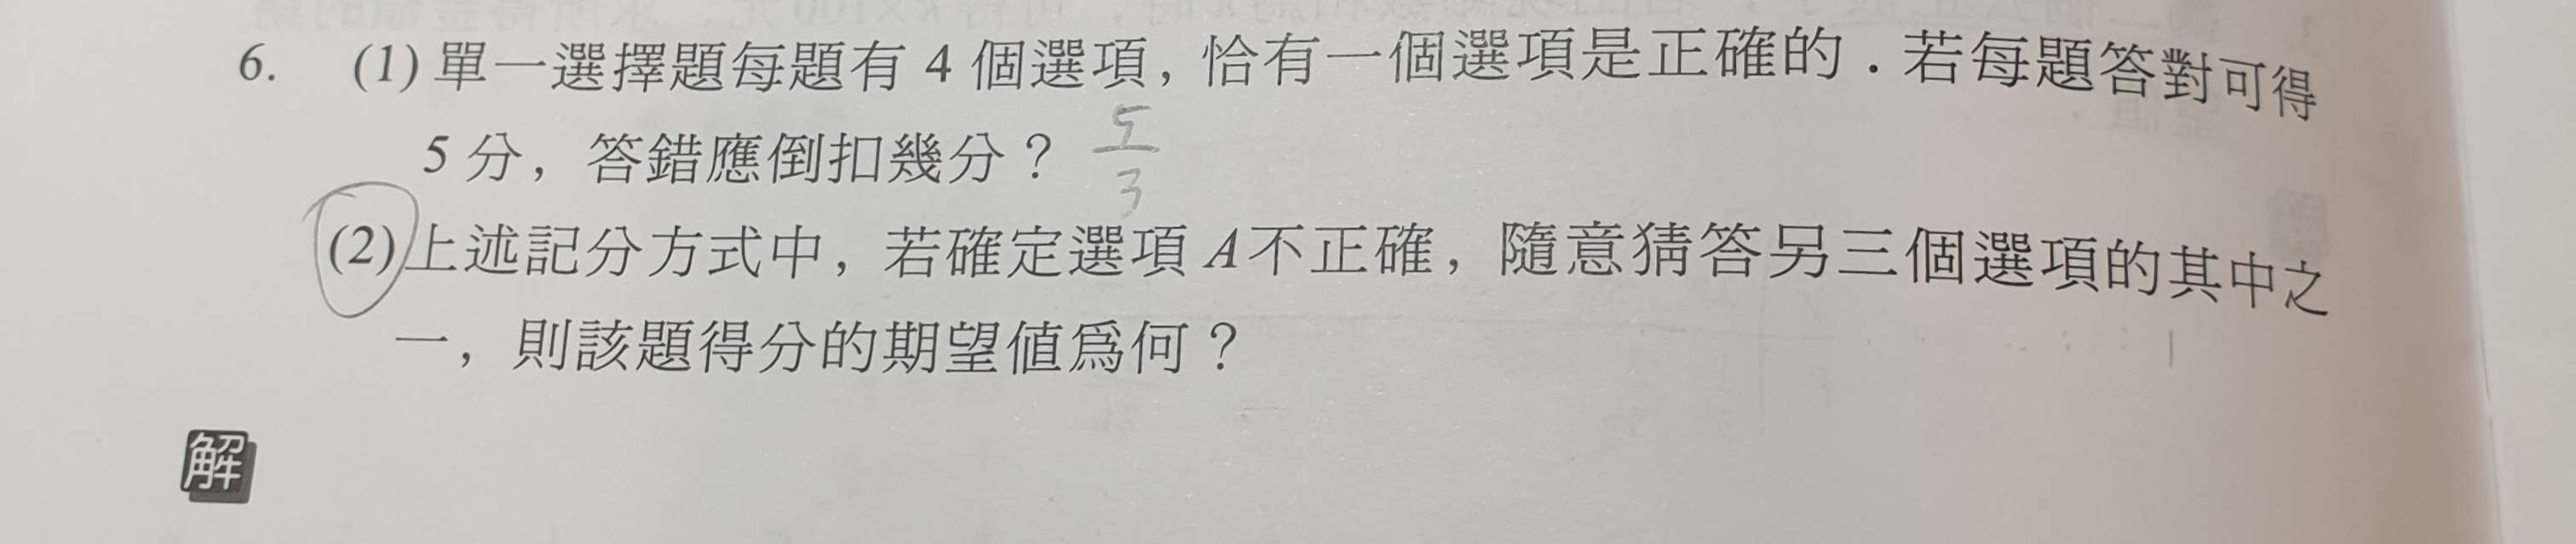 6. (1) 單一選擇題每題有 4 個選項，恰有一個選項是正確的．若每題答對可得
5 分，答錯應倒扣幾分？ 5/3
(2) 上述記分方式中，若確定選項 A 不正確，隨意猜答另三個選項的其中之
一，則該題得分的期望值爲何？
解